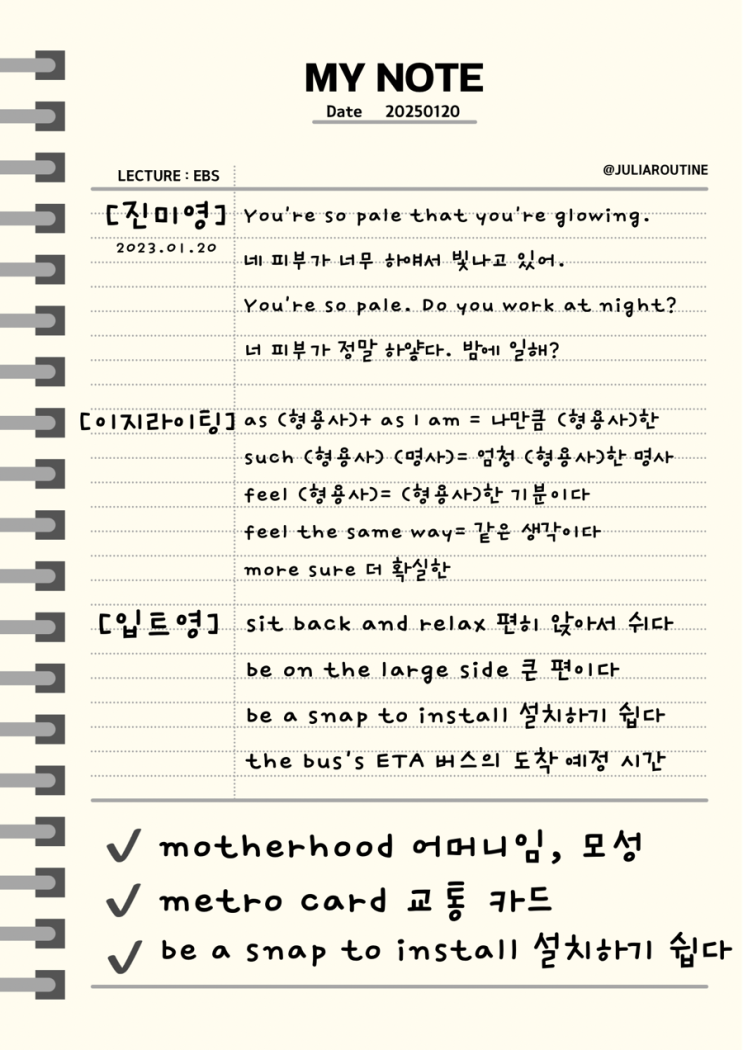 MY NOTE
Date 20250120
LECTURE : EBS
@JULIAROUTINE
[진미영] You're so pale that you're glowing.
2023.01.20
네 피부가 너무 하얘서 빛나고 있어.
You're so pale. Do you work at night?
너 피부가 정말 하얗다. 밤에 일해?
[이지라이팅] as (형용사)+ as I am = 나만큼 (형용사)한
such (형용사) (명사)= 엄청 (형용사)한 명사
feel (형용사)= (형용사)한 기분이다
feel the same way= 같은 생각이다
more sure 더 확실한
[입트영] sit back and relax 편히 앉아서 쉬다
be on the large side 큰 편이다
be a snap to install 설치하기 쉽다
the bus's ETA 버스의 도착 예정 시간
✓ motherhood 어머니임, 모성
✓ metro card 교통 카드
✓ be a snap to install 설치하기 쉽다